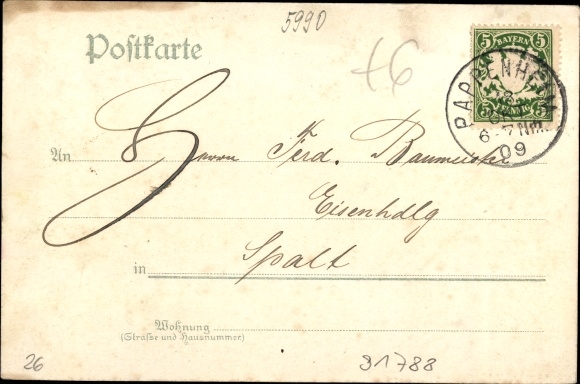 5990
Postkarte
+6
5 BAYERN 5
5 PFENNIG 5
PAPPENHEIM
18
6-7 NM.
09
An Herrn Ferd. Baumeister
Eisenhdlg
in Spalt
Wohnung
(Straße und Hausnummer)
26
91788